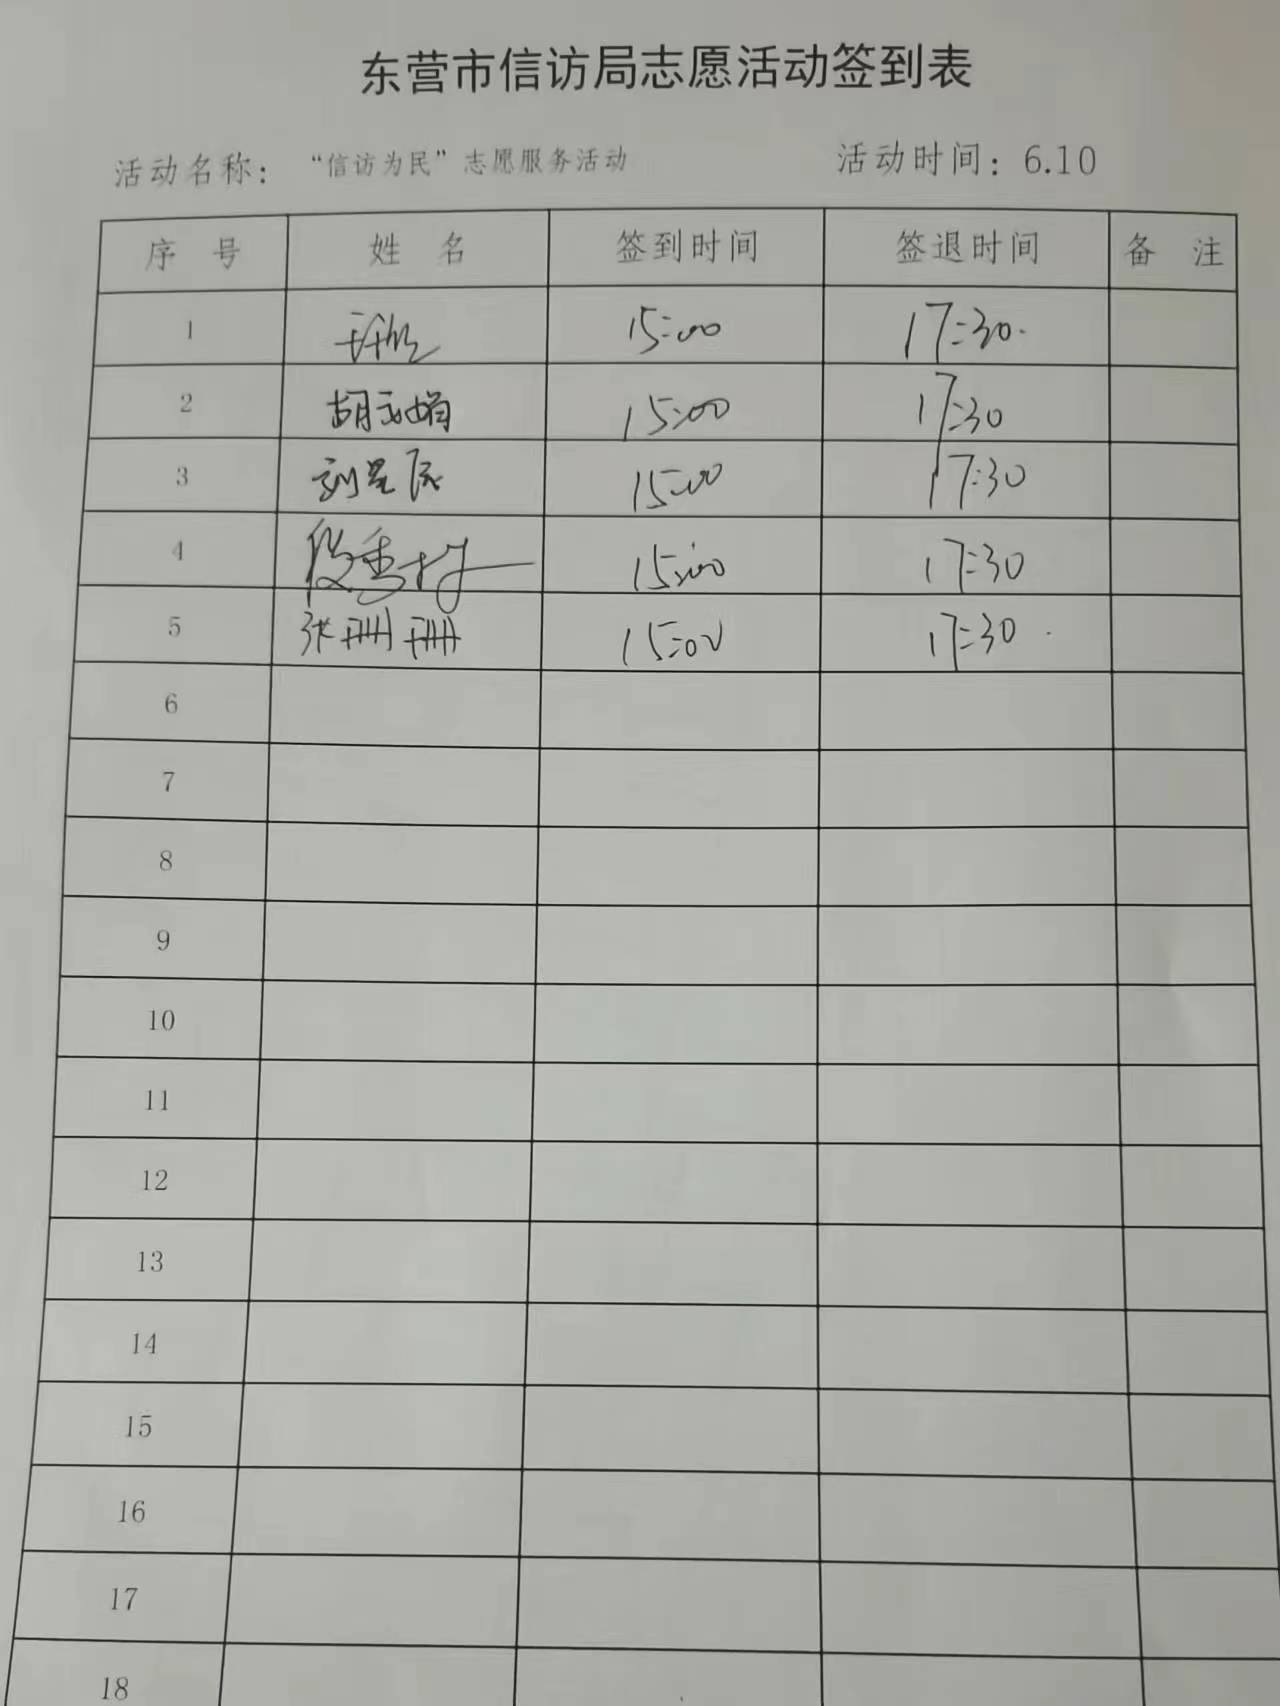 东营市信访局志愿活动签到表
活动名称：“信访为民”志愿服务活动 活动时间：6.10
序 号 姓 名 签到时间 签退时间 备 注
1 15:00 17:30
2 胡永娟 15:00 17:30
3 刘星辰 15:00 17:30
4 段秀梅 15:00 17:30
5 张珊珊 15:00 17:30
6
7
8
9
10
11
12
13
14
15
16
17
18